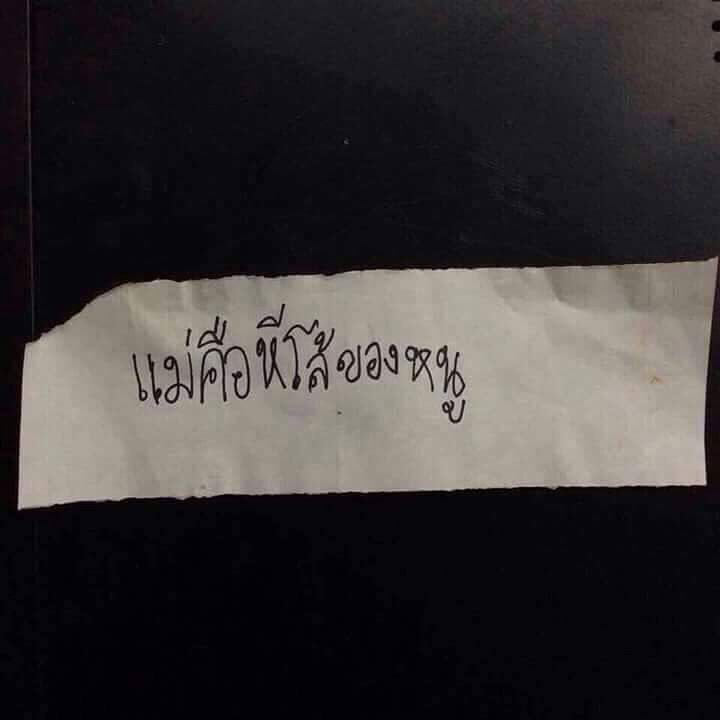 แม่คือหีโล้ของหนู